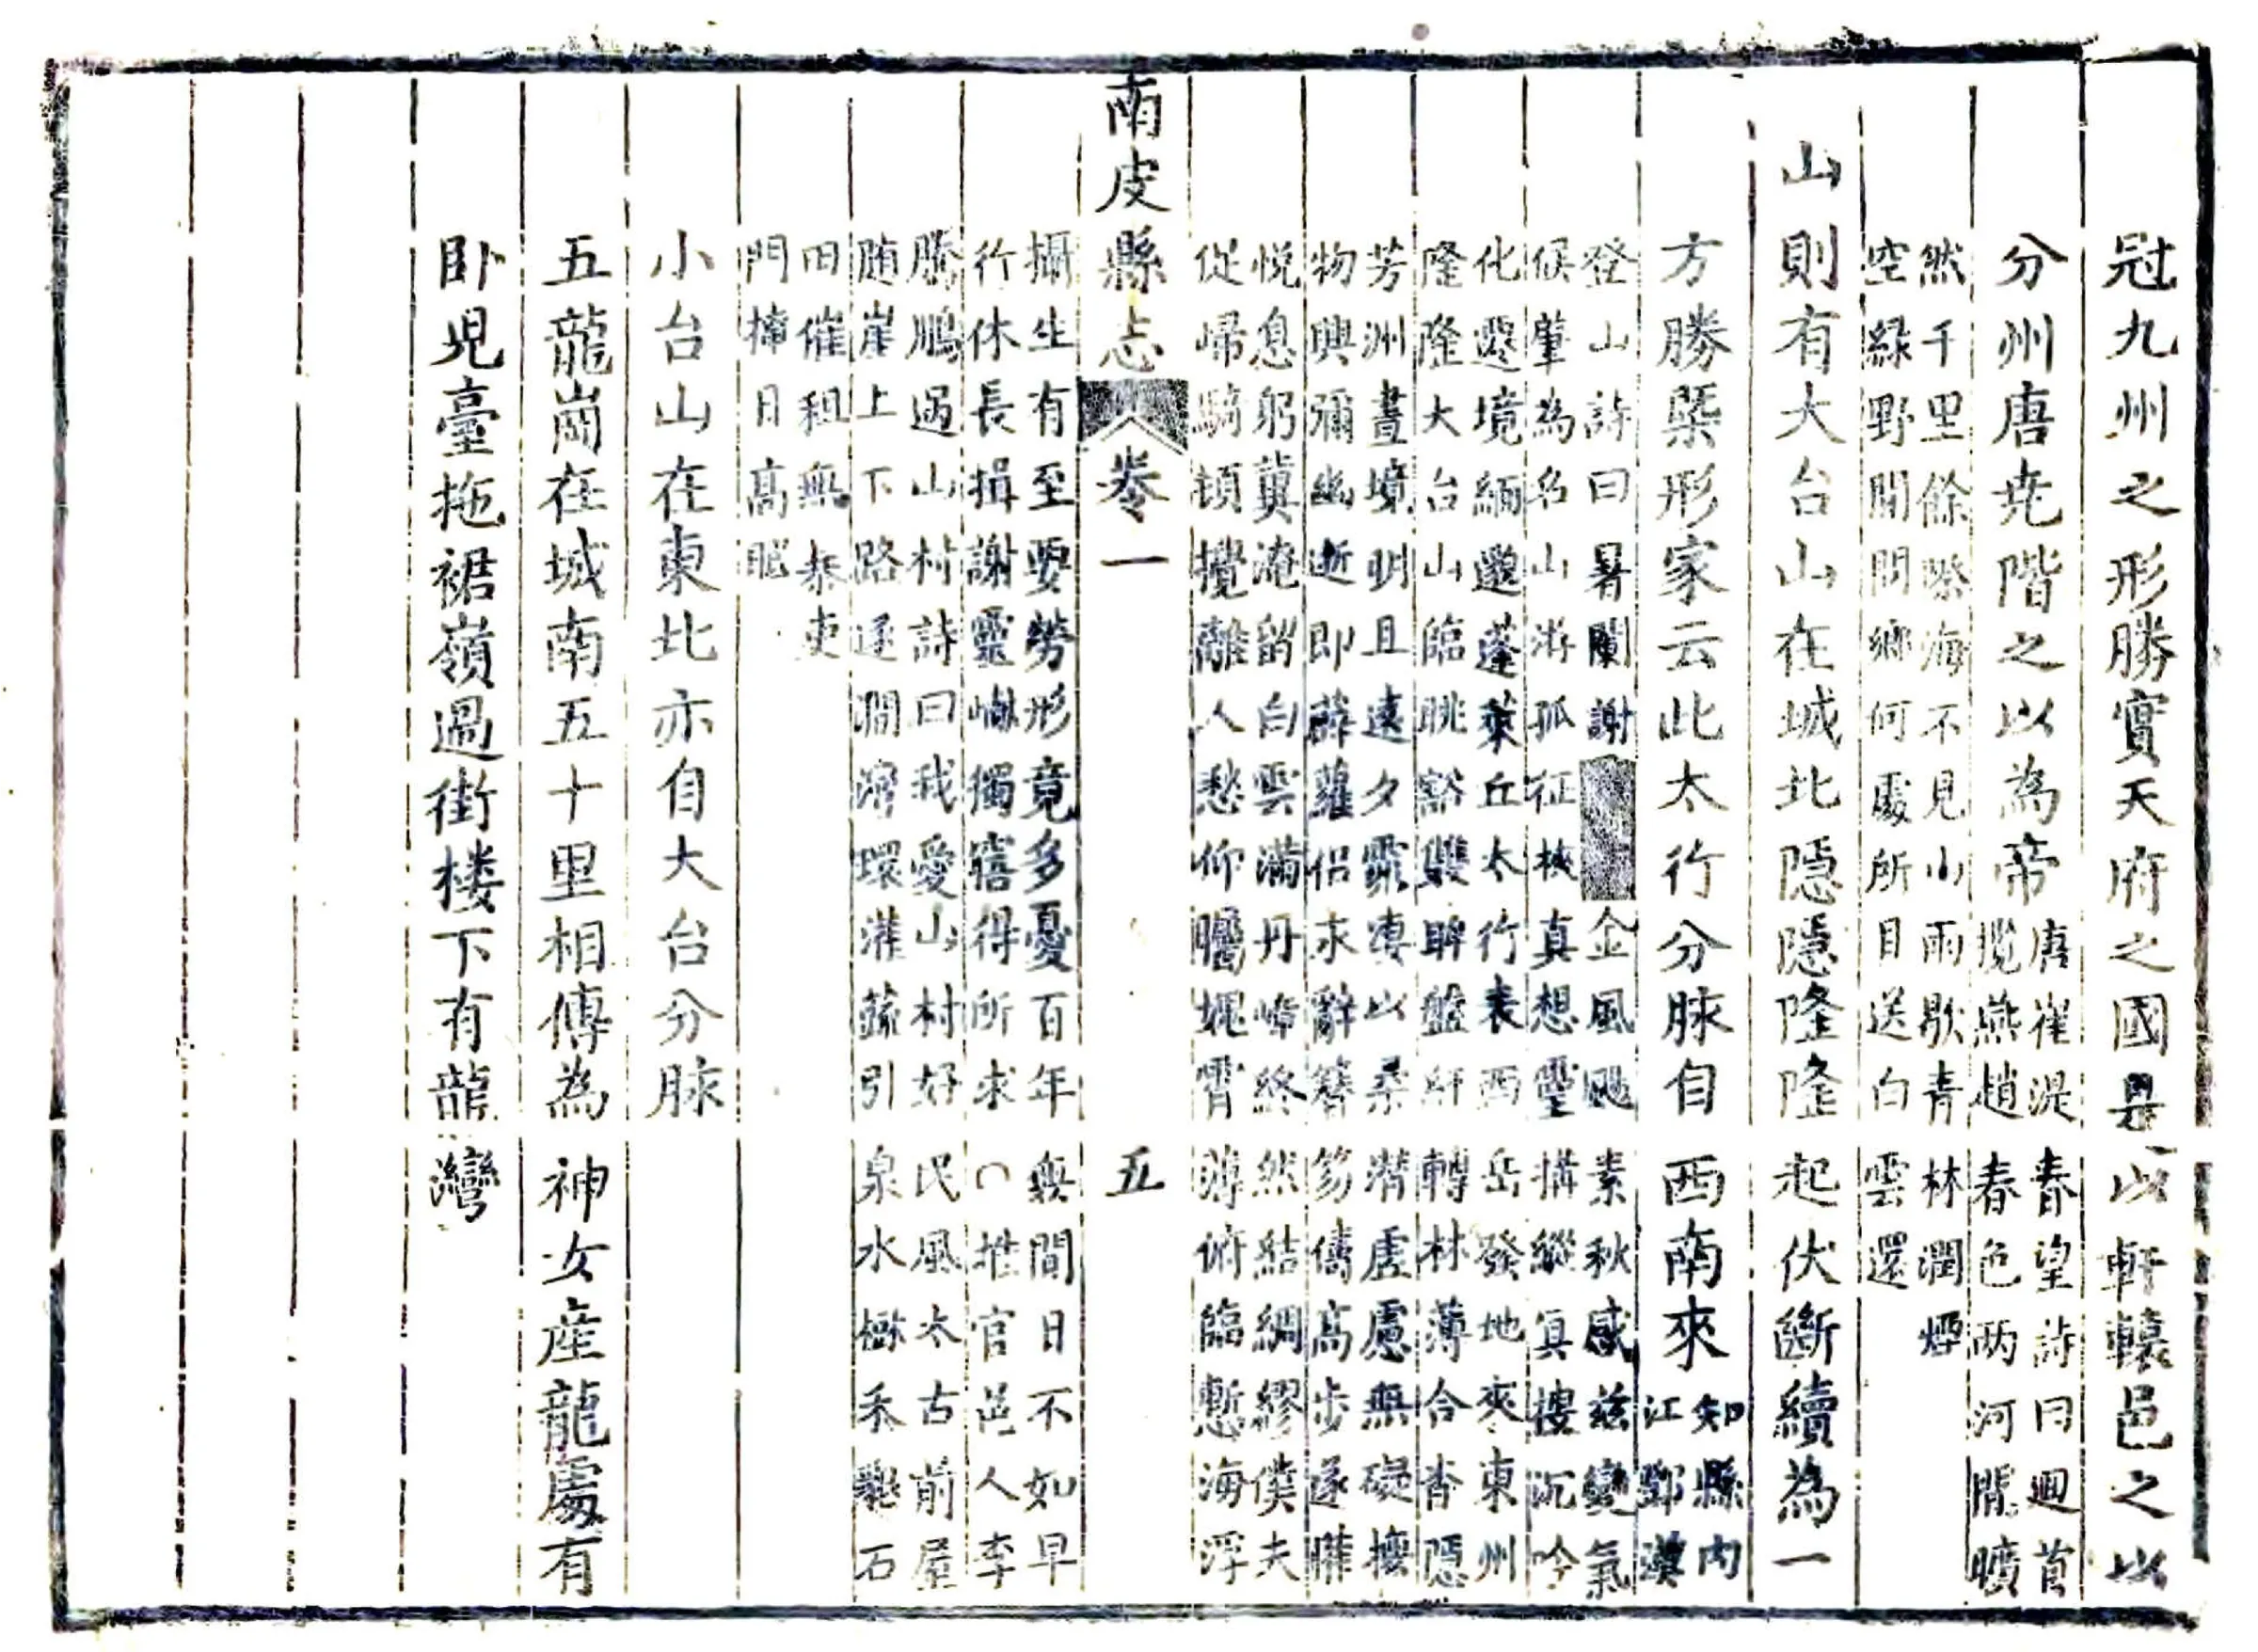 冠九州之形勝實天府之國是以軒轅邑之以
分州唐尭階之以為帝
唐崔湜春望詩曰迴首
攬燕趙春色両河間曠
然千里餘際海不見山雨歇青林潤煙
空綠野閒問鄉何處所目送白雲還
山則有大台山在城北隱隱隆隆起伏斷續為一
方勝槩形家云此太行分脉自西南來
知縣内
江鄧漢
登山詩曰暑闌謝金風颸素秋感茲變氣
候肇為名山游孤征挾真想靈搆縱冥搜沉吟
化遷境緬邈蓬萊丘太行表西岳發地夾東州
隆隆大台山臨眺豁雙眸盤紆轉林薄合沓隱
芳洲晝境明且遠夕霏凄以柔潛虛慮無礙擾
物興彌幽逝即薜蘿侣求辭簪笏儔高步遂
悦息躬冀淹留白雲滿丹峰終然結綢繆僕夫
從歸騎頓攬離人愁仰矚霄薄俯臨慙海浮
南皮縣志
卷一
五
攝生有至要勞形竟多憂百年無間日不如早
行休長揖謝靈獨寤得所求官邑人李
騰鵬過山村詩曰我愛山村好民風太古前屋
隨崖上下路逐澗環灌蔬引泉水禾石
田催租無暴吏
門掩日高眠
小台山在東北亦自大台分脉
五龍崗在城南五十里相傳為神女産龍處有
卧児臺拖裾嶺過街楼下有龍灣